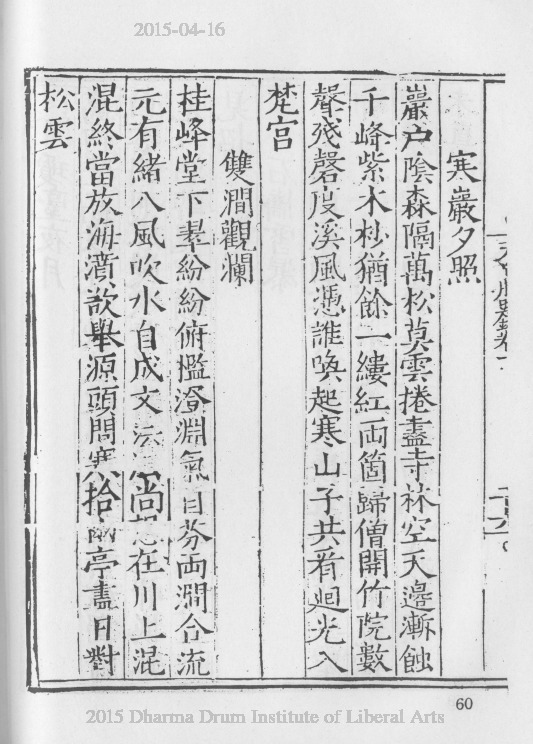 2015-04-16
寒巖夕照
巖戶陰森隔萬松莫雲捲盡寺林空天邊漸蝕
千峰紫木杪猶餘一縷紅兩箇歸僧開竹院數
聲殘磬度溪風憑誰喚起寒山子共看迴光入
梵宮
雙澗觀瀾
桂峰堂下羣紛紛俯檻澄淵氣自芬兩澗合流
元有緒八風吹水自成文尚在川上混
混終當放海濆欲舉源頭問寒拾亭盡日對
松雲
60
2015 Dharma Drum Institute of Liberal Arts